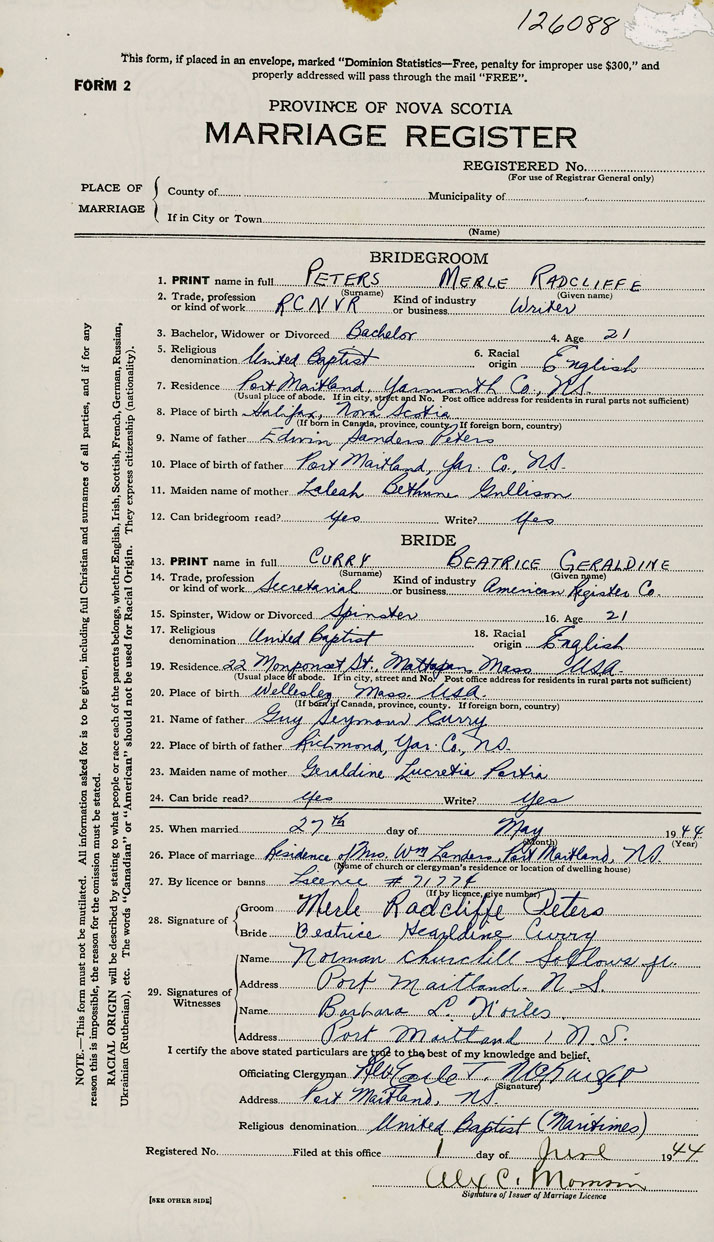 126088
This form, if placed in an envelope, marked "Dominion Statistics—Free, penalty for improper use $300," and
properly addressed will pass through the mail "FREE".
FORM 2
PROVINCE OF NOVA SCOTIA
MARRIAGE REGISTER
REGISTERED No.
(For use of Registrar General only)
PLACE OF MARRIAGE
County of Municipality of
If in City or Town
(Name)
BRIDEGROOM
1. PRINT name in full PETERS MERLE RADCLIFFE
(Surname) (Given name)
2. Trade, profession or kind of work RCNVR Kind of industry or business Writer
3. Bachelor, Widower or Divorced Bachelor 4. Age 21
5. Religious denomination United Baptist 6. Racial origin English
7. Residence Port Maitland, Yarmouth Co., NS.
(Usual place of abode. If in city, street and No. Post office address for residents in rural parts not sufficient)
8. Place of birth Halifax, Nova Scotia
(If born in Canada, province, county. If foreign born, country)
9. Name of father Edwin Sanders Peters
10. Place of birth of father Port Maitland, Yar. Co., NS.
11. Maiden name of mother Laleah Bethune Gullison
12. Can bridegroom read? Yes Write? Yes
BRIDE
13. PRINT name in full CURRY BEATRICE GERALDINE
(Surname) (Given name)
14. Trade, profession or kind of work Secretarial Kind of industry or business American Register Co.
15. Spinster, Widow or Divorced Spinster 16. Age 21
17. Religious denomination United Baptist 18. Racial origin English
19. Residence 22 Monponset St., Mattapan, Mass. USA.
(Usual place of abode. If in city, street and No. Post office address for residents in rural parts not sufficient)
20. Place of birth Wellesley Mass. USA.
(If born in Canada, province, county. If foreign born, country)
21. Name of father Guy Seymour Curry
22. Place of birth of father Richmond, Yar. Co., NS.
23. Maiden name of mother Geraldine Lucretia Portia
24. Can bride read? Yes Write? Yes
25. When married 27th day of May 1944
(Month) (Year)
26. Place of marriage Residence of Mrs. Wm Landers, Port Maitland, NS.
(Name of church or clergyman's residence or location of dwelling house)
27. By licence or banns Licence # 71774
(If by licence, give number)
28. Signature of Groom Merle Radcliffe Peters
Bride Beatrice Gearldine Curry
29. Signatures of Witnesses
Name Norman Churchill Sollows jr.
Address Port Maitland. N.S.
Name Barbara L.
Address Port Maitland, N.S.
I certify the above stated particulars are true to the best of my knowledge and belief.
Officiating Clergyman Rev
(Signature)
Address Port Maitland, NS.
Religious denomination United Baptist (Maritimes)
Registered No. Filed at this office 1 day of June 1944
Alex C.
Signature of Issuer of Marriage Licence
[SEE OTHER SIDE]
NOTE.—This form must not be mutilated. All information asked for is to be given, including full Christian and surnames of all parties, and if for any
reason this is impossible, the reason for the omission must be stated.
RACIAL ORIGIN will be described by stating to what people or race each of the parents belongs, whether English, Irish, Scottish, French, German, Russian,
Ukrainian (Ruthenian), etc. The words "Canadian" or "American" should not be used for Racial Origin. They express citizenship (nationality).